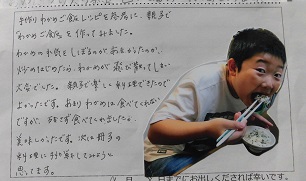 手作りわかめご飯レシピを参考に、親子で
わかめご飯を作ってみました。
わかめの水気をしぼるのが足りなかったか、
炒めはじめたら、わかめが飛び散ってしまい
大変でした。親子で楽しく料理できたので
よかったです。あまりわかめは食べてくれない
ですが、残さず食べてくれました。
美味しかったです。次は親子の
料理に挑戦してみようと
思ってます。
月 日までにお出しくだされば幸いです。